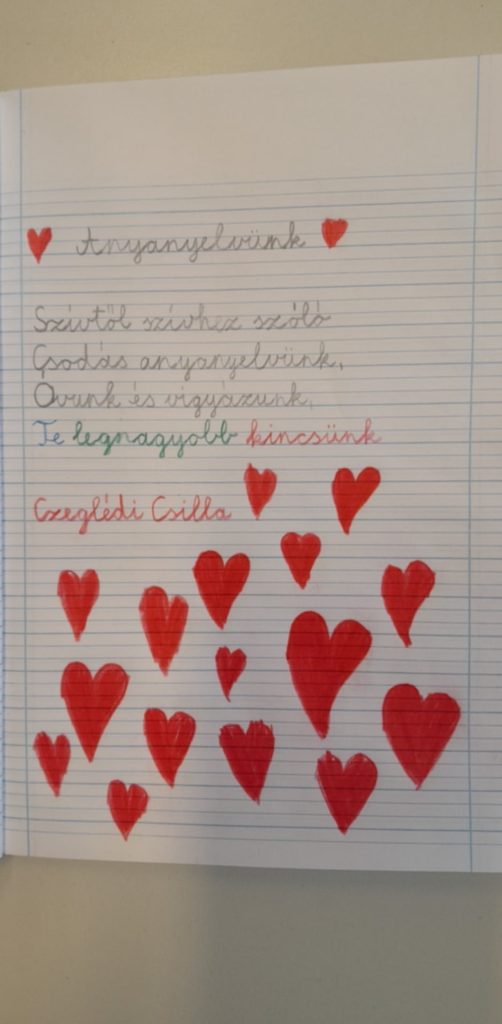 Anyanyelvünk
Szívtől szívhez szóló
Csodás anyanyelvünk,
Óvunk és vigyázunk,
Te legnagyobb kincsünk
Czeglédi Csilla